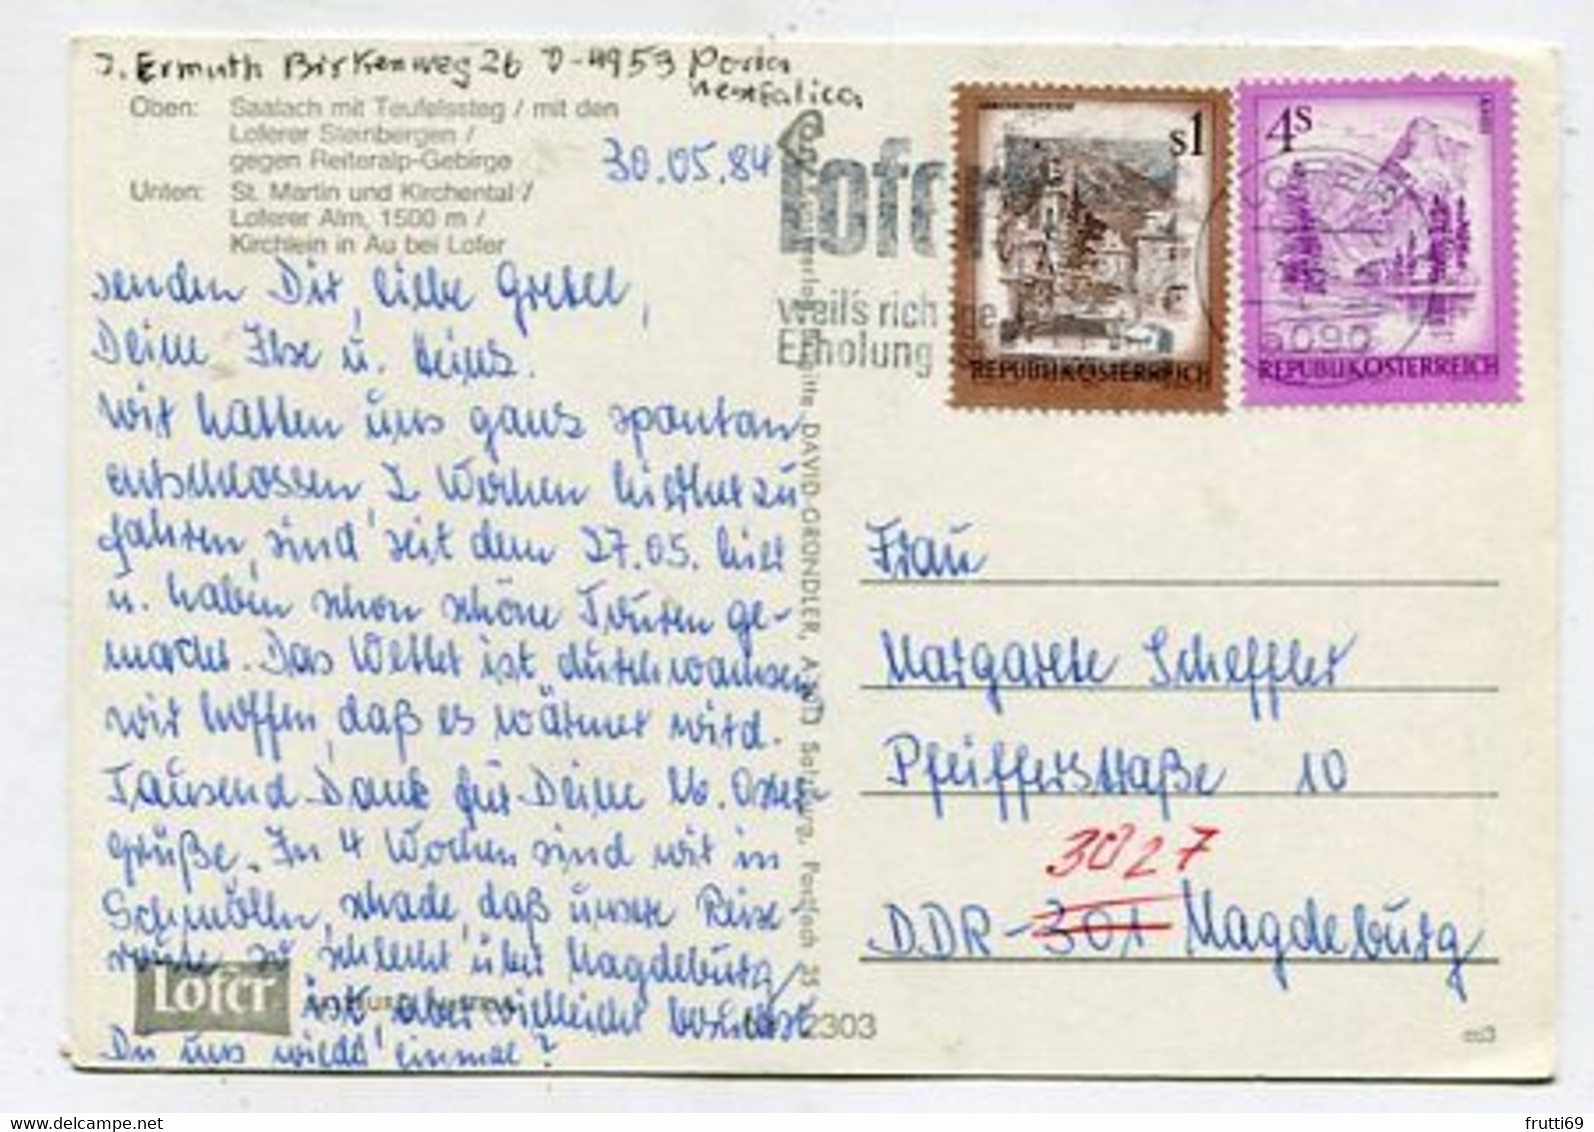 J. Ermuth Birkenweg 26 D-4953 Porta
Westfalica
Oben: Saalach mit Teufelssteg / mit den
Loferer Steinbergen /
gegen Reiteralp-Gebirge
Unten: St. Martin und Kirchental /
Loferer Alm, 1500 m /
Kirchlein in Au bei Lofer
30.05.84
senden Dir, liebe Gretel,
Deine Ilse u. Heinz.
Wir hatten uns ganz spontan
entschlossen, 2 Wochen hierher zu
fahren, sind seit dem 27.05. hier
u. haben schon schöne Touren ge-
macht. Das Wetter ist durchwachsen,
wir hoffen, daß es wärmer wird.
Tausend Dank für Deine lb. Oster-
grüße. In 4 Wochen sind wir in
Schmölln, schade, daß unsere Reise-
route so schlecht über Magdeburg
ist, aber vielleicht besuchst
Du uns wieder einmal?
Lofer
2303
DAVID GRÜNDLER, Salzburg, Postfach 25
Lofer
weil's rich
Erholung
S1
REPUBLIK ÖSTERREICH
4S
REPUBLIK ÖSTERREICH
5090
Frau
Margarete Scheffler
Pfeifferstraße 10
3027
DDR-301 Magdeburg
cc3
delcampe.net
frutti69